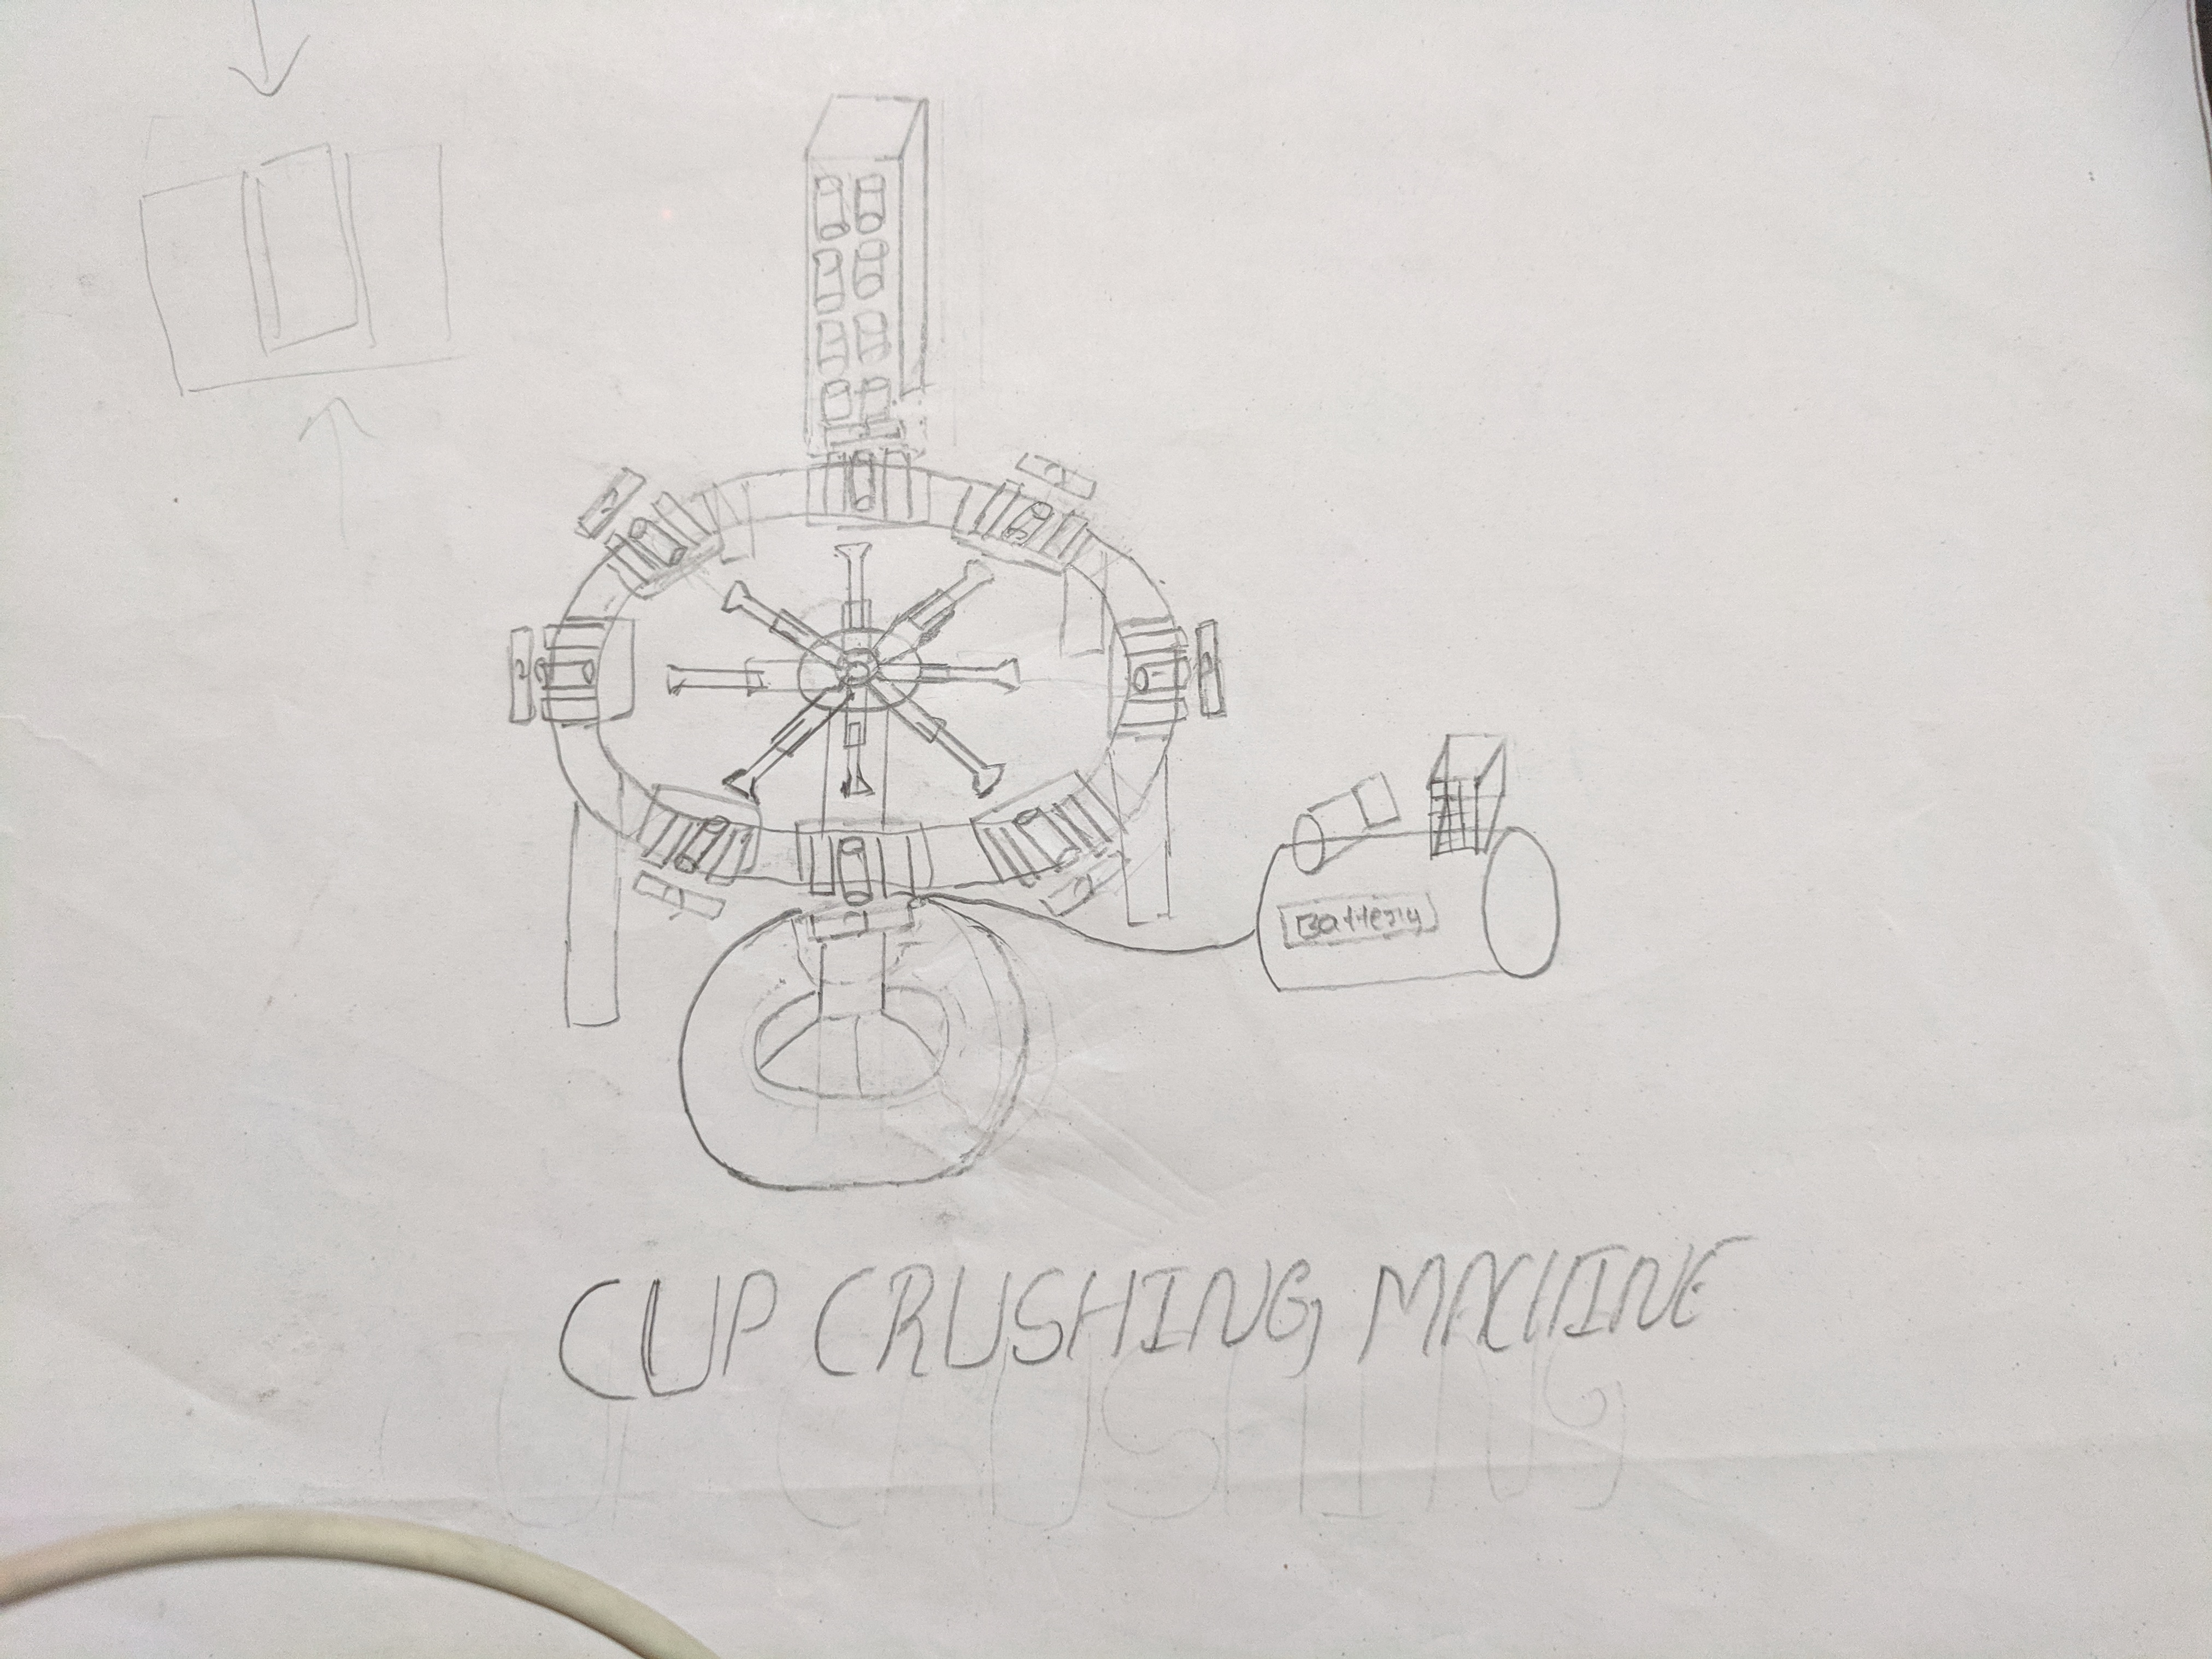 Battery
CUP CRUSHING MACHINE
CUP CRUSHING